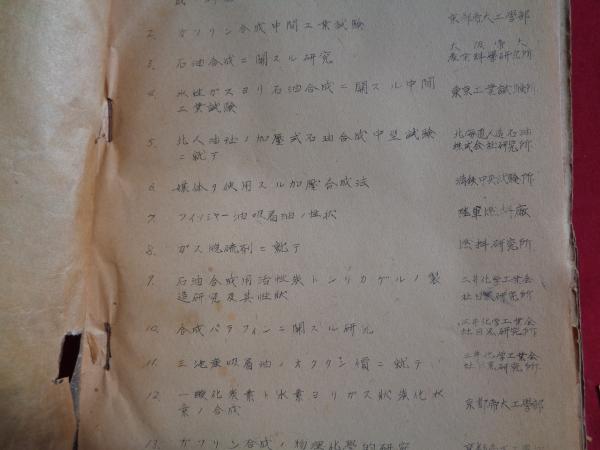 2. ガソリン合成中間工業試験 京都帝大工學部
3. 石油合成ニ関スル研究 大阪帝大
産業科學研究所
4. 水性ガスヨリ石油合成ニ関スル中間 東京工業試験所
工業試験
5. 北人油社ノ加圧式石油合成中型試験 北海道人造石油
ニ就テ 株式会社研究所
6. 媒体ヲ使用スル加圧合成法 満鉄中央試験所
7. フィッシャー油吸着油ノ性状 陸軍燃料廠
8. ガス脱硫剤ニ就テ 燃料研究所
9. 石油合成用活性炭トシリカゲルノ製 三井化学工業会
造研究及其性状 社目黒研究所
10. 合成パラフィンニ関スル研究 三井化学工業会
社目黒研究所
11. 三池産吸着油ノオクタン價ニ就テ 三井化学工業会
社目黒研究所
12. 一酸化炭素ト水素ヨリガス状炭化水 京都帝大工學部
素ノ合成
13. ガソリン合成ノ物理化學的研究 京都帝大工學部